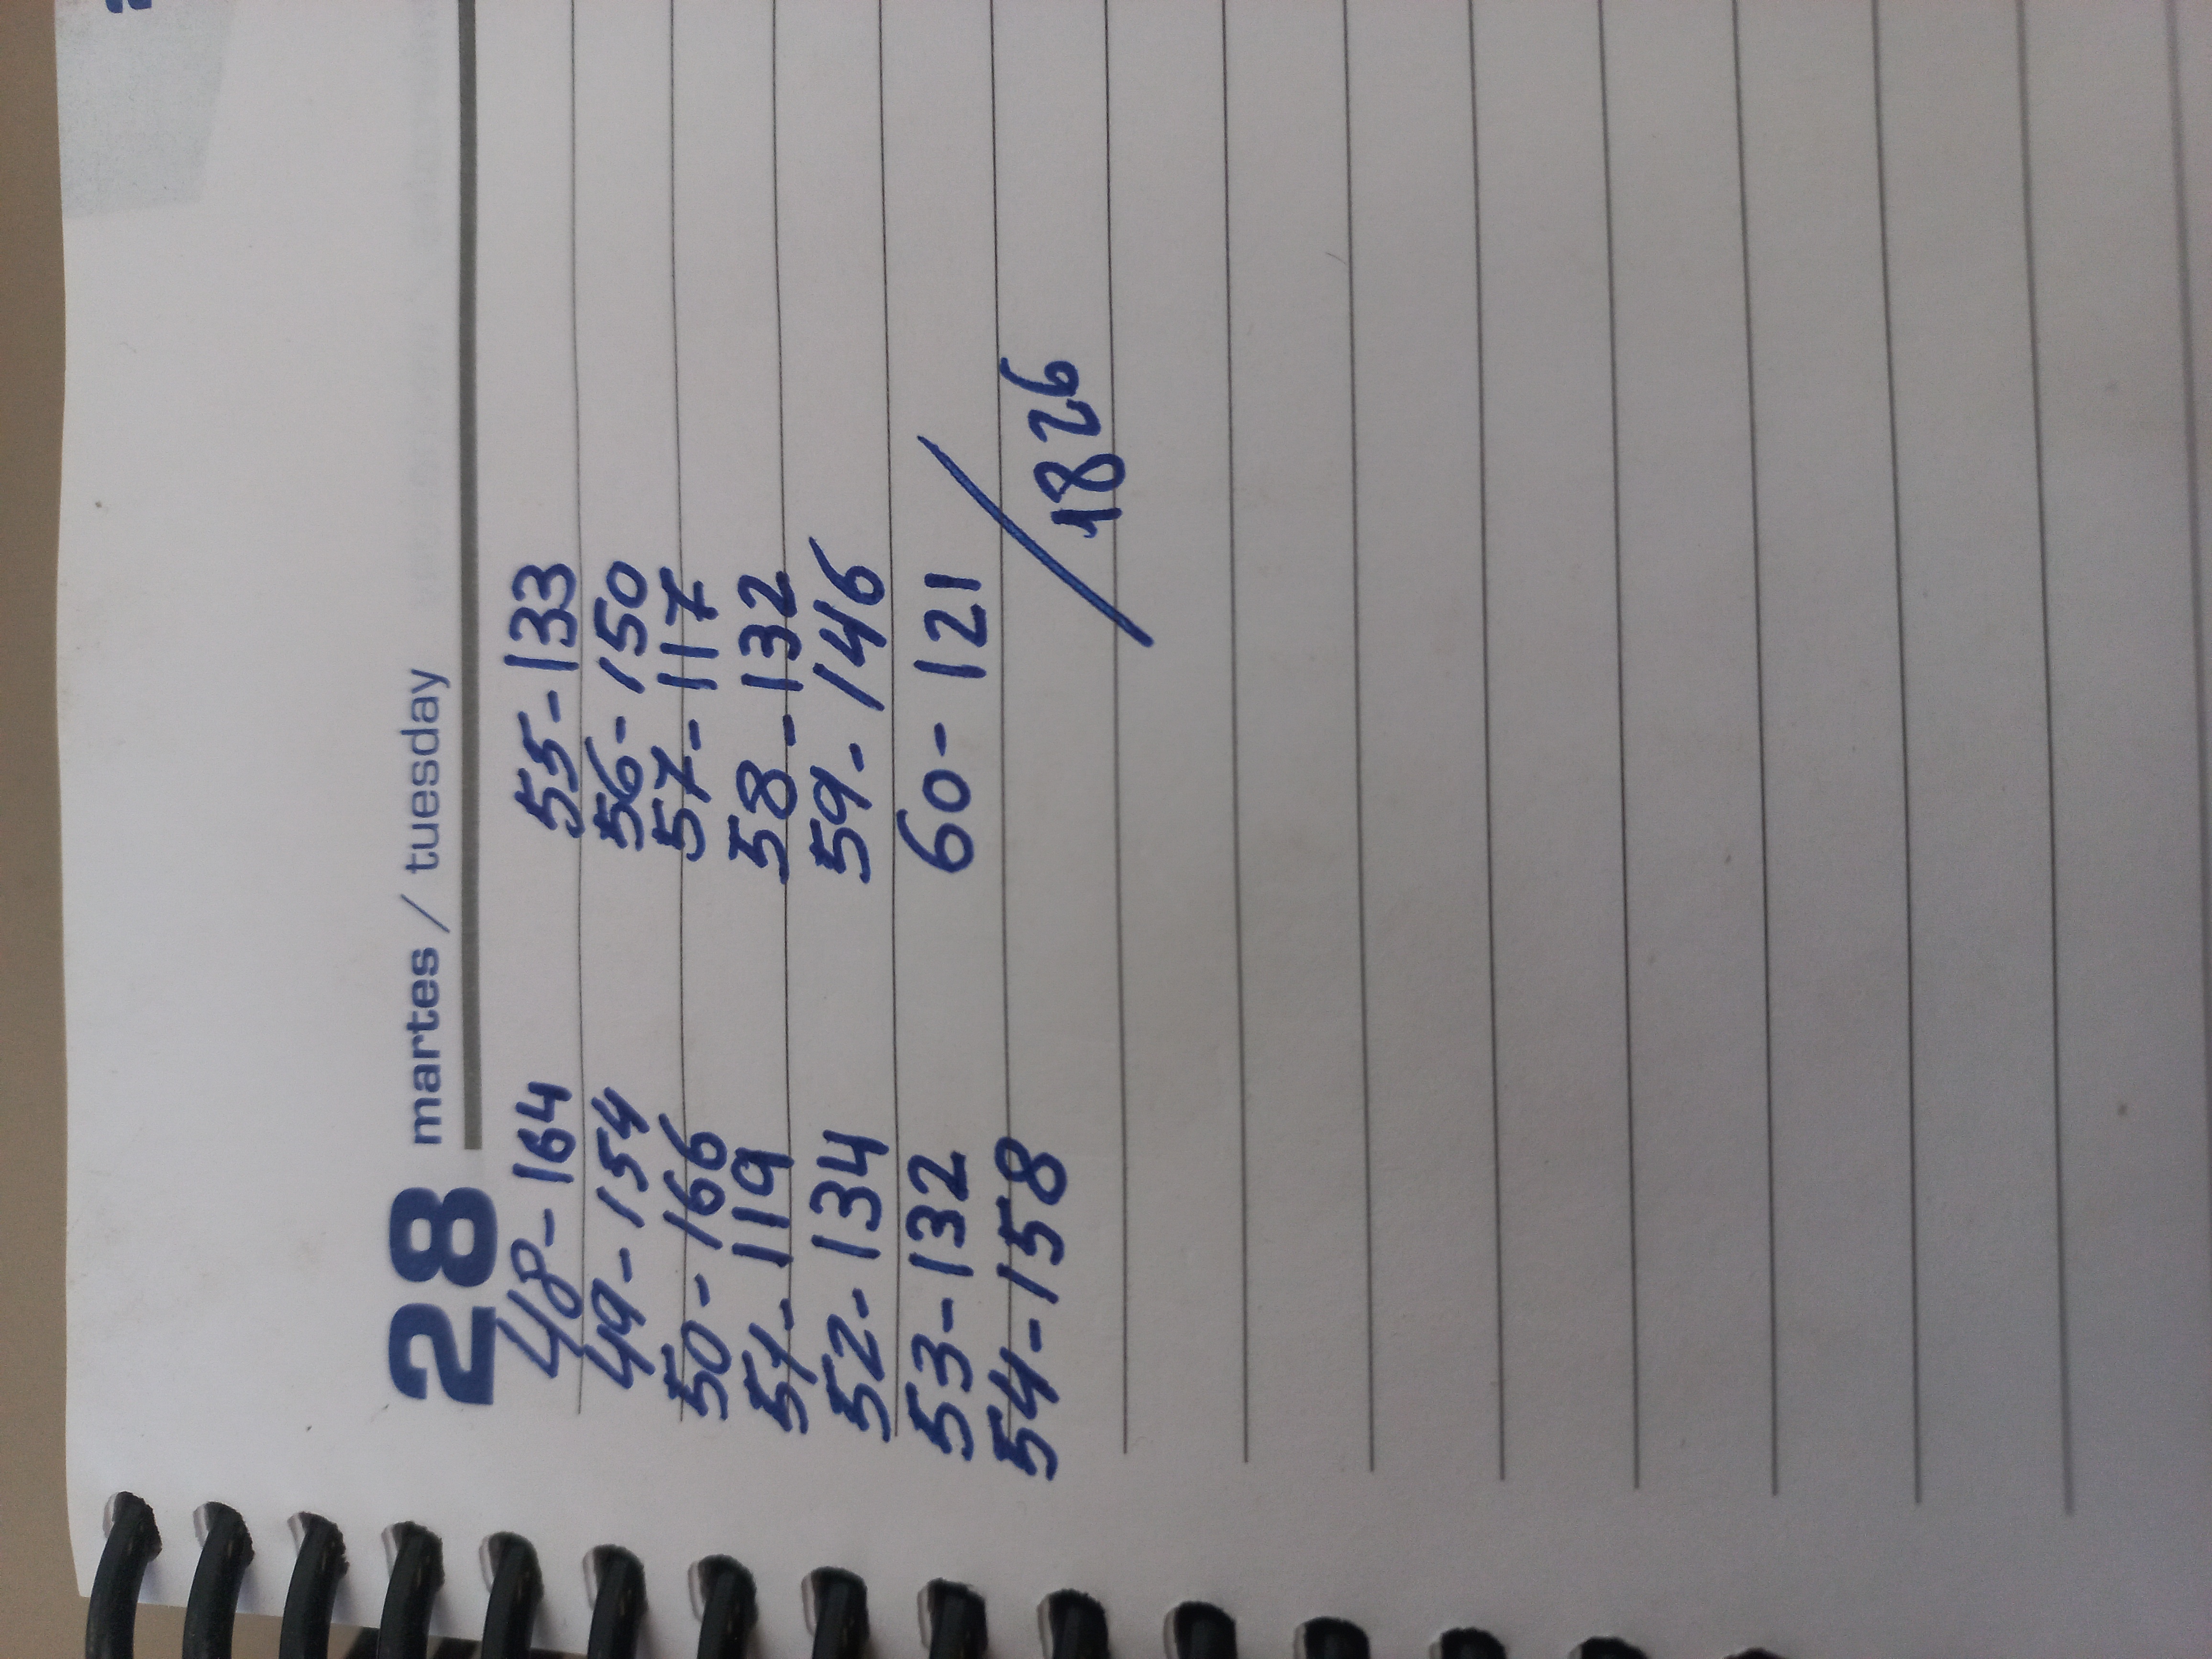 28 martes / tuesday
48-164 55-133
49-154 56-150
50-166 57-117
51-119 58-132
52-134 59-146
53-132 60-121
54-158 / 1826